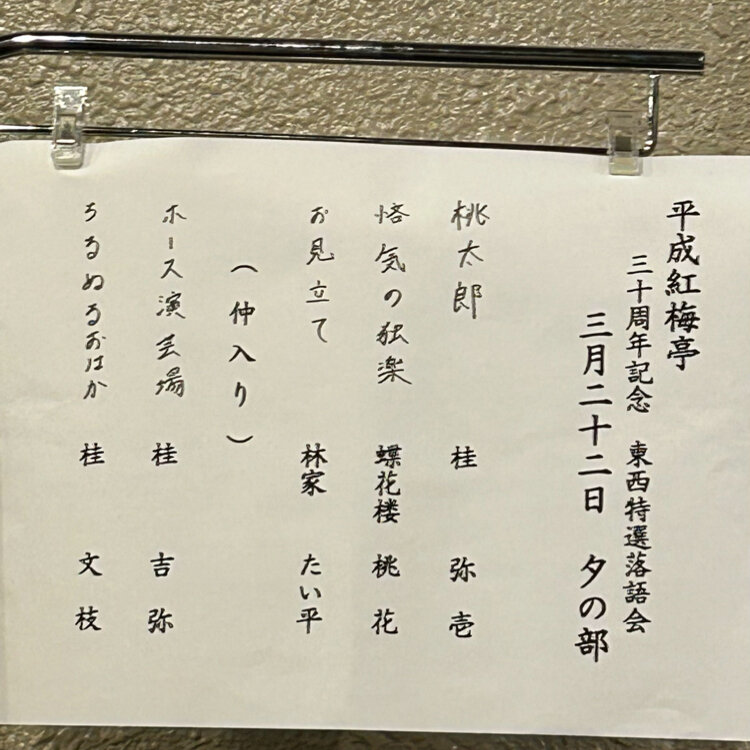 平成紅梅亭
三十周年記念 東西特選落語会
三月二十二日 夕の部
桃太郎 桂 弥壱
悋気の独楽 蝶花楼 桃花
お見立て 林家 たい平
(仲入り)
ホース演芸場 桂 吉弥
ちるぬるおはか 桂 文枝